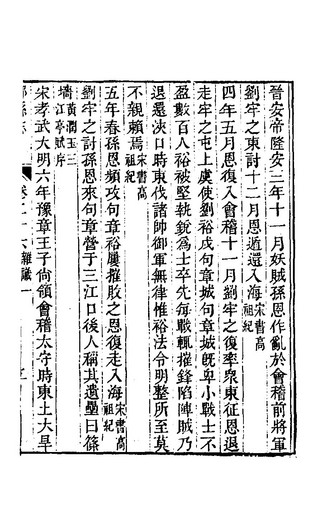 晉安帝隆安三年十一月妖賊孫恩作亂於會稽前將軍
劉牢之東討十二月恩遁還入海宋書高祖紀
四年五月恩復入會稽十一月劉牢之復率衆東征恩退
走牢之屯上虞使劉裕戍句章城句章城旣卑小戰士不
盈數百人裕被堅執銳爲士卒先每戰輒摧鋒陷陣賊乃
退還浹口時東伐諸帥御軍無律惟裕法令明整所至莫
不親賴焉宋書高祖紀
五年春孫恩頻攻句章裕屢摧敗之恩復走入海宋書高祖紀
劉牢之討孫恩來句章營于三江口後人稱其遺壘曰篠
墻黃潤玉三江亭賦序
宋孝武大明六年豫章王子尚領會稽太守時東土大旱
卷二十六雜識一